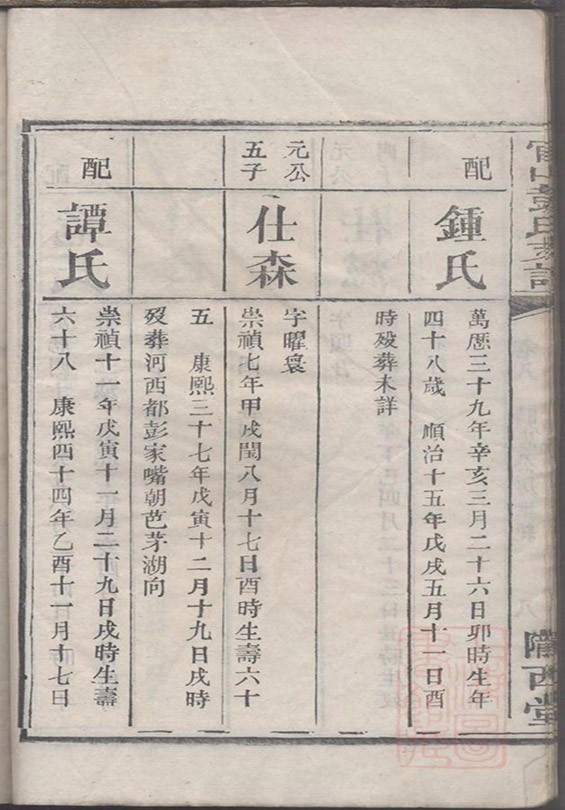 官山彭氏族譜
八
隴西堂
配
鍾氏
萬歷三十九年辛亥三月二十六日卯時生年
四十八歲 順治十五年戊戌五月十一日酉
時歿葬未詳
元公
五子
仕森
字曜寰
崇禎七年甲戌閏八月十七日酉時生壽六十
五 康熙三十七年戊寅十二月十九日戌時
歿葬河西都彭家嘴朝芭茅湖向
配
譚氏
崇禎十一年戊寅十一月二十九日戌時生壽
六十八 康熙四十四年乙酉十一月十七日